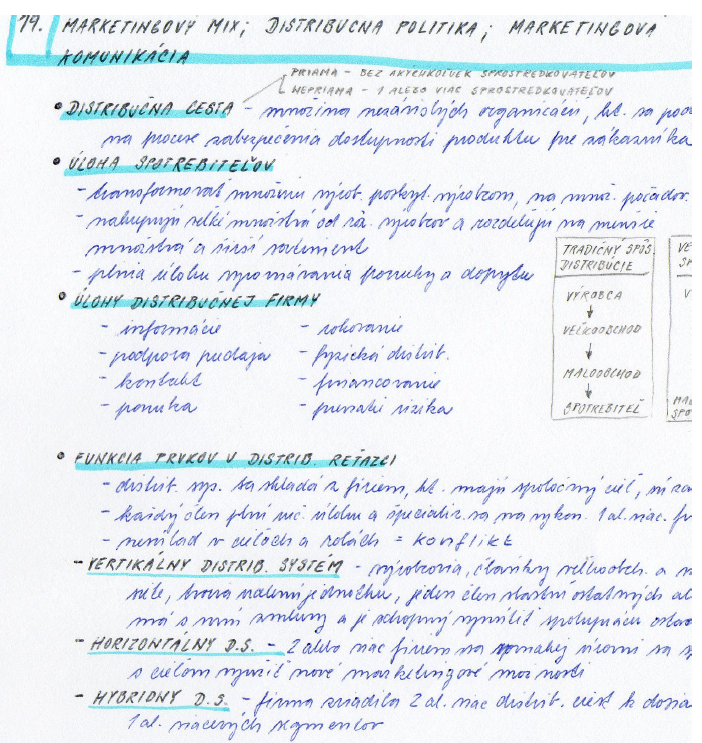 19. MARKETINGOVÝ MIX; DISTRIBUČNÁ POLITIKA; MARKETINGOVÁ
KOMUNIKÁCIA
PRIAMA - BEZ AKÝCHKOĽVEK SPROSTREDKOVATEĽOV
NEPRIAMA - 1 ALEBO VIAC SPROSTREDKOVATEĽOV
• DISTRIBUČNÁ CESTA - množina nezávislých organizácií, kt. sa pod
na procese zabezpečenia dostupnosti produktu pre zákazníka
• ÚLOHA SPOTREBITEĽOV
- transformovať množinu výrob. poskyt. výrobcom, na množ. požadov.
- nakupujú veľké množstvá od rôz. výrobcov a rozdeľujú na menšie
množstvá a širší sortiment
- plnia úlohu vyrovnávania ponuky a dopytu
• ÚLOHY DISTRIBUČNEJ FIRMY
- informácie - rokovanie
- podpora predaja - fyzická distrib.
- kontakt - financovanie
- ponuka - prevzatie rizika
TRADIČNÝ SPÔS.
DISTRIBÚCIE
VÝROBCA
↓
VEĽKOOBCHOD
↓
MALOOBCHOD
↓
SPOTREBITEĽ
VE
SP
V
MAL
SPO
• FUNKCIA PRVKOV V DISTRIB. REŤAZCI
- distrib. sys. sa skladá z firiem, kt. majú spoločný cieľ, sú
- každý člen plní urč. úlohu a špecializ. sa na výkon. 1 al. viac.
- nesúlad v cieľoch a rolách = konflikt
- VERTIKÁLNY DISTRIB. SYSTÉM - výrobcovia, článkty veľkoobch. a
tvoria jednotku, jeden člen vlastní ostatných al
má s nimi zmluvy a je schopný vynútiť spoluprácu
- HORIZONTÁLNY D.S. - 2 alebo viac firiem na rovnakej úrovni sa
s cieľom využiť nové marketingové možnosti
- HYBRIDNÝ D.S. - firma zriadila 2 al. viac distrib. ciest k
1 al. viacerých segmentov